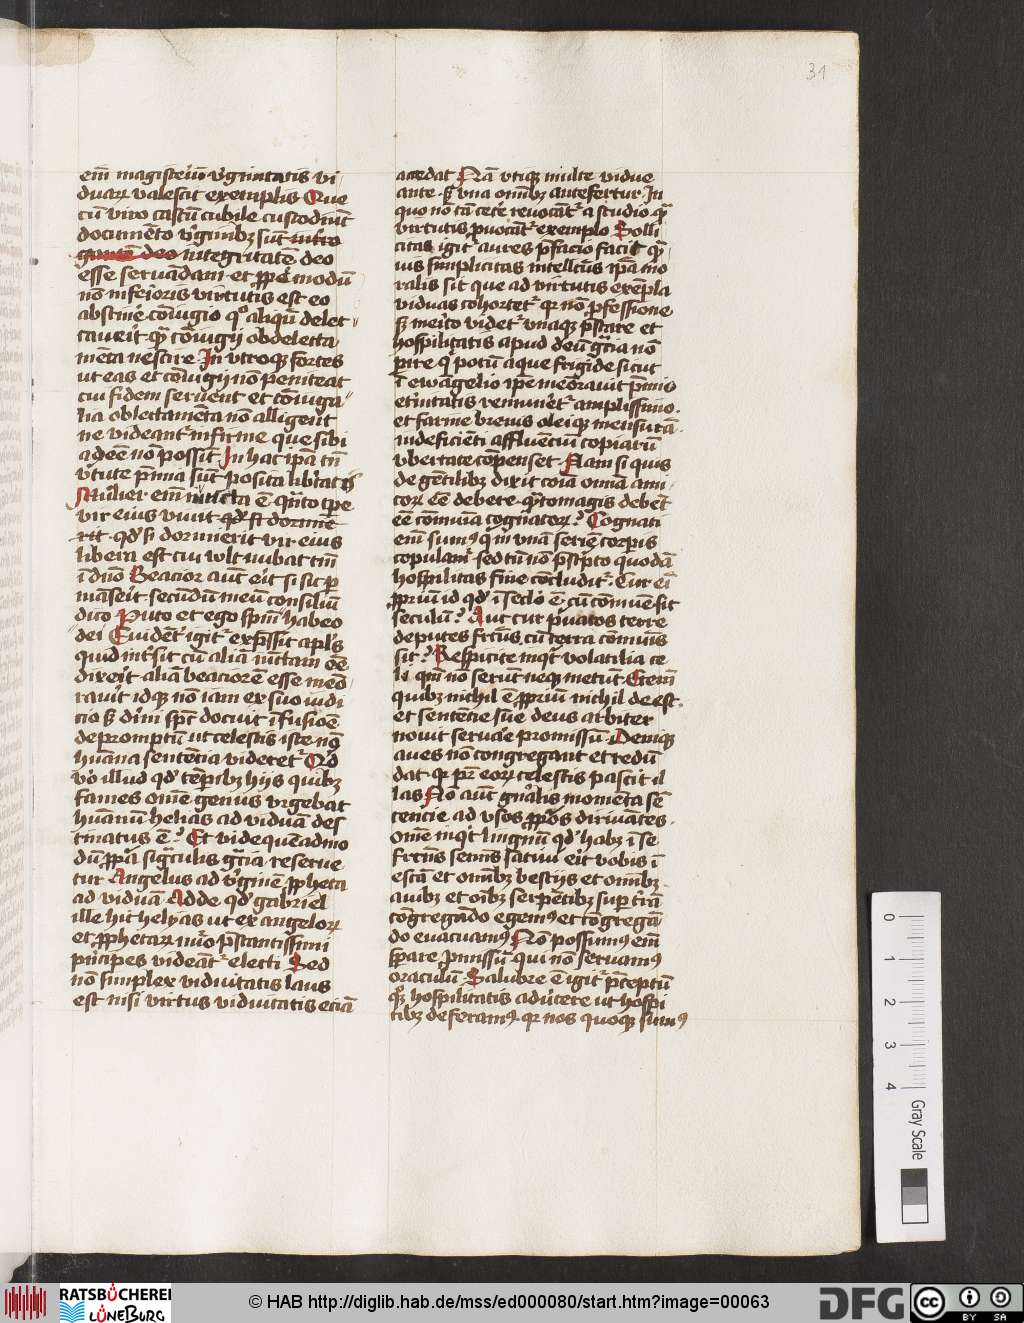 31
em̄ magisteriū v̓ginitatis vi
duaꝝ valescit exemplis Que
cū viro castū cubile custodiūt
documēto v̓ginibꝫ sūt infro
integritatē deo
esse seruandam et ꝓpe modū
nō inferioris virtutis est eo
abstinē cōiugio qͦ aliqn̄ delet
tauerit qͣ cōiugij oblectta
mēta nescire In vtroqꝫ fortes
ut eas et cōiugij nō peniteat
cui fidem seruent et cōiuga
lia oblectamēta nō alligent
ne videant᷑ infirme que sibi
adeē nō possit In hac ip̄a tn̄
v̓tute p̄mia sūt posita lib̓tatis
Mulier em̄ iuncta ē qn̄to tp̄e
vir eius viuit qd̓ si dormie
rit qd̓ si dormierit vir eius
libera est cui wlt nubat tm̄
ī dn̄o Beacior aut̄ erit si sic ꝑ
manserit secundū meū consiliū
dico Puto et ego sp̄m habeo
dei Euidēt᷑ igit᷑ exp̄ssit apl̓s
quid int̓sit cū aliā iūctam eē
dixerit aliā beaciorē esse memo
rauit idqꝫ nō iam ex suo iudi
cio sꝫ diuī sp̄c docuit īfusiōe
depromptū ut celestis iste nō
hūana sentētia videret᷑ Qͥd
v̓o illud qd̓ tēꝑibꝫ hijs quibꝫ
fames ōmē genus vrgebat
hūanū helias ad viduā des
tinatus ē? Et vide quēadmo
dū ꝓp̄a sigͣculis gr̄cia reserue
tur Angelus ad v̓ginē ꝓpheta
ad viduā Adde qd̓ gabriel
ille hic helyas ut ex angeloꝝ
et ꝓphetaꝝ nūo p̄stantissimi
prīcipes videāt᷑ electi Sed
nō simplex viduitatis laus
est nisi virtus viduitatis eciā
accedat Nā vtiqꝫ multe vidue
ante sꝫ vna omībꝫ antefertur In
quo nō tā cet̓e reuocāt᷑ a studio qͣ
virtutis ꝓuocāt᷑ exemplo Solli
citas igit᷑ aures p̄facio facit qͣ
uis simplicitas intellctus ip̄a mo
ralis sit que ad virtutis exēpla
viduas cohortet᷑ qꝛ nō ꝓfessione
sꝫ merito videt᷑ vnaqꝫ p̄stare et
hospititatis apud deū gr̄cia nō
ꝑire qͥ potū aque frigide sicut
ī ewāgelio ip̄e memorauit p̄mio
et̓nitatis remuneret᷑ amplissimo
et farine breuis oleiqꝫ mensurā
indeficiēti affluenciū copiarū
vbertate cōpenset Nam si quis
de gētilibꝫ dixit cōia omīa ami
coꝝ eē debere qͣntomagis debēt
eē cōmunia cognatoꝝ? Cognati
em̄ sumꝯ qͥ in vnā seriē corꝑis
copulamᷣ sed tū nō p̄scͥpto quodā
hospitalitas fine cōcludit᷑ Cur em̄
ꝓpriū id qd̓ ī seclo ē cū cōmune sit
seculū? Aut cur pͥuatos terre
deputes frct̄us cū terra cōmunis
sit? Respicite inqͥt volatilia ce
li qm̄ nō serūt neqꝫ metūt Etem̄
quibꝫ nichil ē ꝓpriū nichil deest
et sententie sue deus arbiter
nouit seruare promissū Deniqꝫ
aues nō congregant et redū
dat qꝛ pr̄ eoꝝ celestis pascit il
las Nō aut̄ gnalis momēta sē
tencie ad vsos ꝓpͥos diriuates
Omē inqͥt lingnū qd̓ habꝫ ī se
frct̄us semis satiui erit vobis ī
escā et omībꝫ bestijs et omībꝫ
auibꝫ et oībꝫ serpētibꝫ suꝑ t̓rā
cōgregādo egemꝯ et cōgregā
do euacuamꝯ Nō possumꝯ em̄
sꝑare ꝓmissū qui nō seruamꝯ
oraculū Salubre ē igit᷑ p̄ceptū
qꝫ hospitalitatis aduertere ut hospi
tibꝫ deferamꝯ qꝛ nos quoqꝫ sumꝯ
0
1
2
3
4
Gray Scale
RATSBÜCHEREI
LÜNEBURG
© HAB http://diglib.hab.de/mss/ed000080/start.htm?image=00063
DFG
cc
BY SA